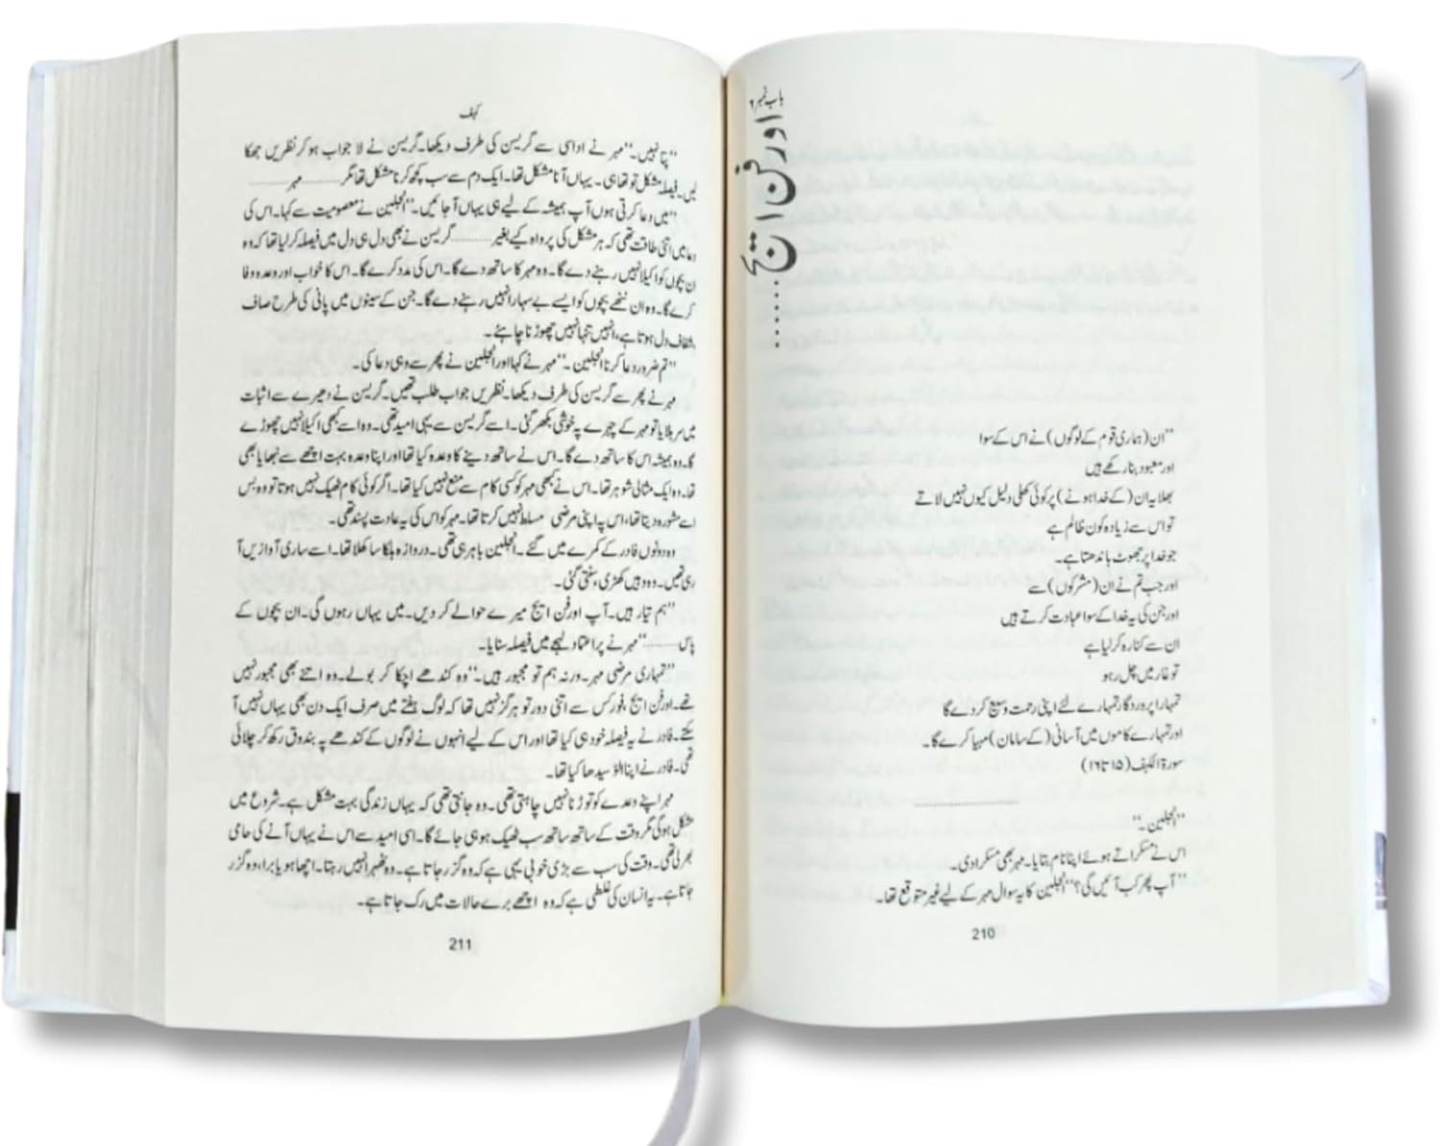 باب نمبر ۶
اورفن ایج......
"ان (ہماری قوم کے لوگوں) نے اس کے سوا
اور معبود بنا رکھے ہیں
بھلا یہ ان (کے خدا ہونے) پر کوئی کھلی دلیل کیوں نہیں لاتے
تو اس سے زیادہ کون ظالم ہے
جو خدا پر جھوٹ باندھتا ہے۔
اور جب تم نے ان (مشرکوں) سے
اور جن کی یہ خدا کے سوا عبادت کرتے ہیں
ان سے کنارہ کر لیا ہے
تو غار میں چل رہو
تمہارا پروردگار تمہارے لئے اپنی رحمت وسیع کر دے گا
اور تمہارے کاموں میں آسانی (کے سامان) مہیا کرے گا۔
سورۃ الکہف (۱۵ تا ۱۶)
"انجلین۔"
اس نے مسکراتے ہوئے اپنا نام بتایا۔ مہر بھی مسکرا دی۔
"آپ پھر کب آئیں گی؟" انجلین کا یہ سوال مہر کے لیے غیر متوقع تھا۔
210
کہف
"پتا نہیں۔" مہر نے اداسی سے گریسن کی طرف دیکھا۔ گریسن نے لا جواب ہو کر نظریں جھکا
لیں۔ فیصلہ مشکل تو تھا ہی۔ یہاں آنا مشکل تھا۔ ایک دم سے سب کچھ کرنا مشکل تھا مگر ........ مہر ........
"میں دعا کرتی ہوں آپ ہمیشہ کے لیے ہی یہاں آ جائیں۔" انجلین نے معصومیت سے کہا۔ اس کی
دعا میں اتنی طاقت تھی کہ ہر مشکل کی پرواہ کیے بغیر ........ گریسن نے بھی دل ہی دل میں فیصلہ کر لیا تھا کہ وہ
ان بچوں کو اکیلا نہیں رہنے دے گا۔ وہ مہر کا ساتھ دے گا۔ اس کی مدد کرے گا۔ اس کا خواب اور وعدہ وفا
کرے گا۔ وہ ان ننھے بچوں کو ایسے بے سہارا نہیں رہنے دے گا۔ جن کے سینوں میں پانی کی طرح صاف
شفاف دل ہوتا ہے، انہیں تنہا نہیں چھوڑنا چاہئے۔
"تم ضرور دعا کرنا انجلین۔" مہر نے کہا اور انجلین نے پھر سے وہی دعا کی۔
مہر نے پھر سے گریسن کی طرف دیکھا۔ نظریں جواب طلب تھیں۔ گریسن نے دھیرے سے اثبات
میں سر ہلایا تو مہر کے چہرے پہ خوشی بکھر گئی۔ اسے گریسن سے یہی امید تھی۔ وہ اسے کبھی اکیلا نہیں چھوڑے
گا۔ وہ ہمیشہ اس کا ساتھ دے گا۔ اس نے ساتھ دینے کا وعدہ کیا تھا اور اپنا وعدہ بہت اچھے سے نبھایا بھی
تھا۔ وہ ایک مثالی شوہر تھا۔ اس نے کبھی مہر کو کسی کام سے منع نہیں کیا تھا۔ اگر کوئی کام ٹھیک نہیں ہوتا تو وہ بس
اسے مشورہ دیتا تھا، اس پہ اپنی مرضی مسلط نہیں کرتا تھا۔ مہر کو اس کی یہ عادت پسند تھی۔
وہ دونوں فادر کے کمرے میں گئے۔ انجلین باہر ہی تھی۔ دروازہ ہلکا سا کھلا تھا۔ اسے ساری آوازیں آ
رہی تھیں۔ وہ وہیں کھڑی، سنتی گئی۔
"ہم تیار ہیں۔ آپ اورفن ایج میرے حوالے کر دیں۔ میں یہاں رہوں گی۔ ان بچوں کے
پاس ........" مہر نے پر اعتماد لہجے میں فیصلہ سنایا۔
"تمہاری مرضی مہر۔ ورنہ ہم تو مجبور ہیں۔" وہ کندھے اچکا کر بولے۔ وہ اتنے بھی مجبور نہیں
تھے۔ اورفن ایج، فورکس سے اتنی دور تو ہرگز نہیں تھا کہ لوگ ہفتے میں صرف ایک دن بھی یہاں نہیں آ
سکتے۔ فادر نے یہ فیصلہ خود ہی کیا تھا اور اس کے لیے انہوں نے لوگوں کے کندھے پہ بندوق رکھ کر چلائی
تھی۔ فادر نے اپنا الو سیدھا کیا تھا۔
مہر اپنے وعدے کو توڑنا نہیں چاہتی تھی۔ وہ جانتی تھی کہ یہاں زندگی بہت مشکل ہے۔ شروع میں
مشکل ہو گی مگر وقت کے ساتھ ساتھ سب ٹھیک ہو ہی جائے گا۔ اسی امید سے اس نے یہاں آنے کی حامی
بھر لی تھی۔ وقت کی سب سے بڑی خوبی یہی ہے کہ وہ گزر جاتا ہے۔ وہ ٹھہرا نہیں رہتا۔ اچھا ہو یا برا، وہ گزر
جاتا ہے۔ یہ انسان کی غلطی ہے کہ وہ اچھے برے حالات میں رک جاتا ہے۔
211